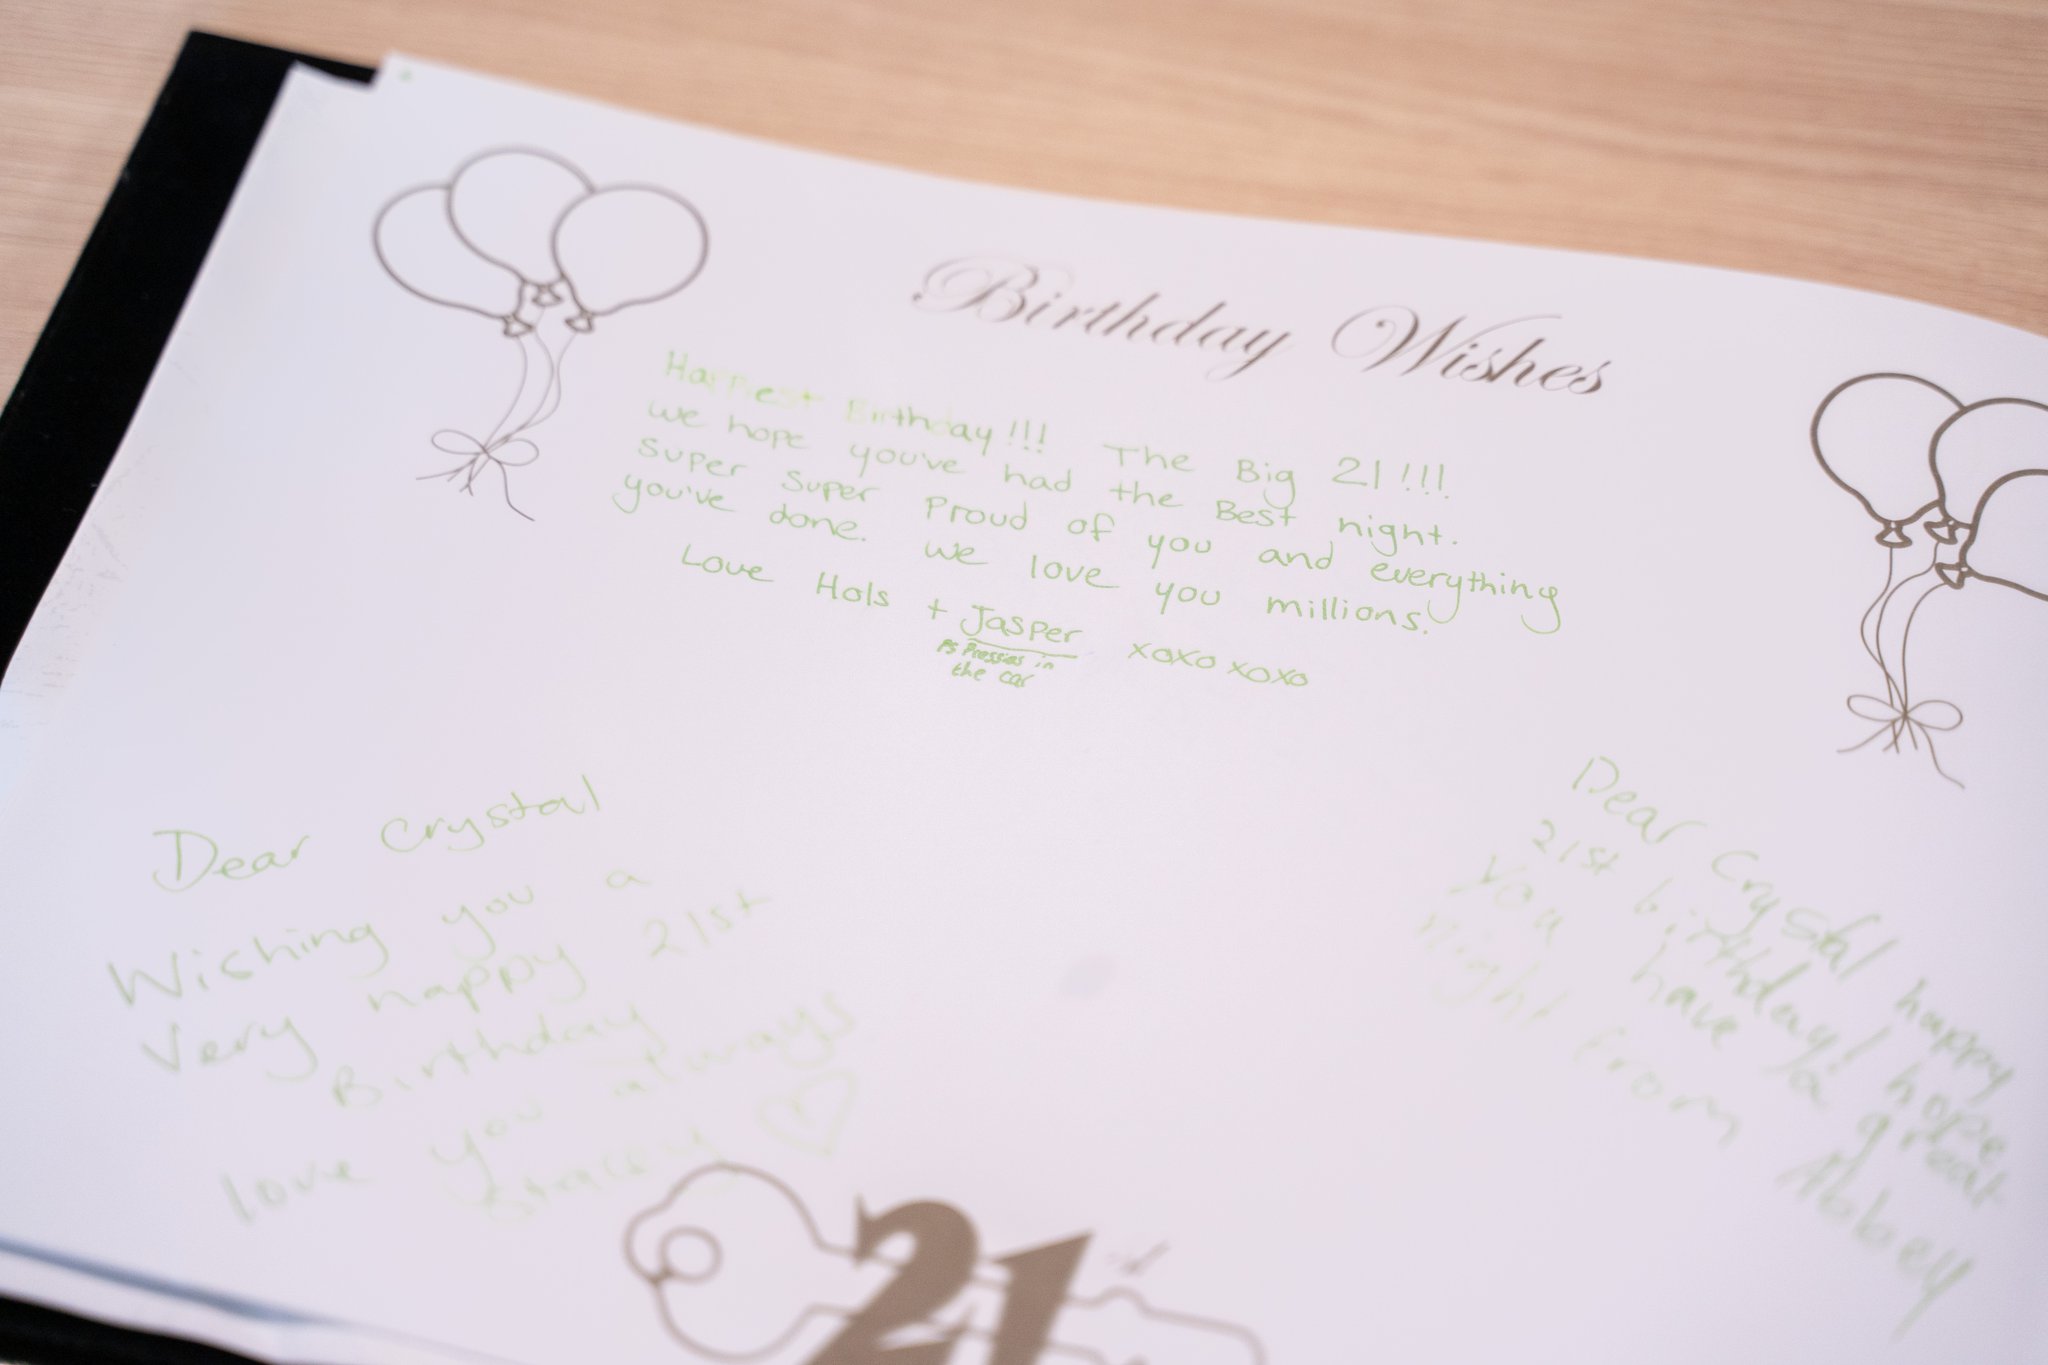 Birthday Wishes
Happiest Birthday!!! The Big 21!!!
we hope you've had the Best night.
super super Proud of you and everything
you've done. we love you millions.
Love Hols + Jasper xoxo xoxo
Ps Pressies in
the car
Dear Crystal
Wishing you a
Very happy 21st
Birthday
love you always
Stacey
Dear Crystal happy
21st birthday! hope
you have a great
night from Abbey
21st